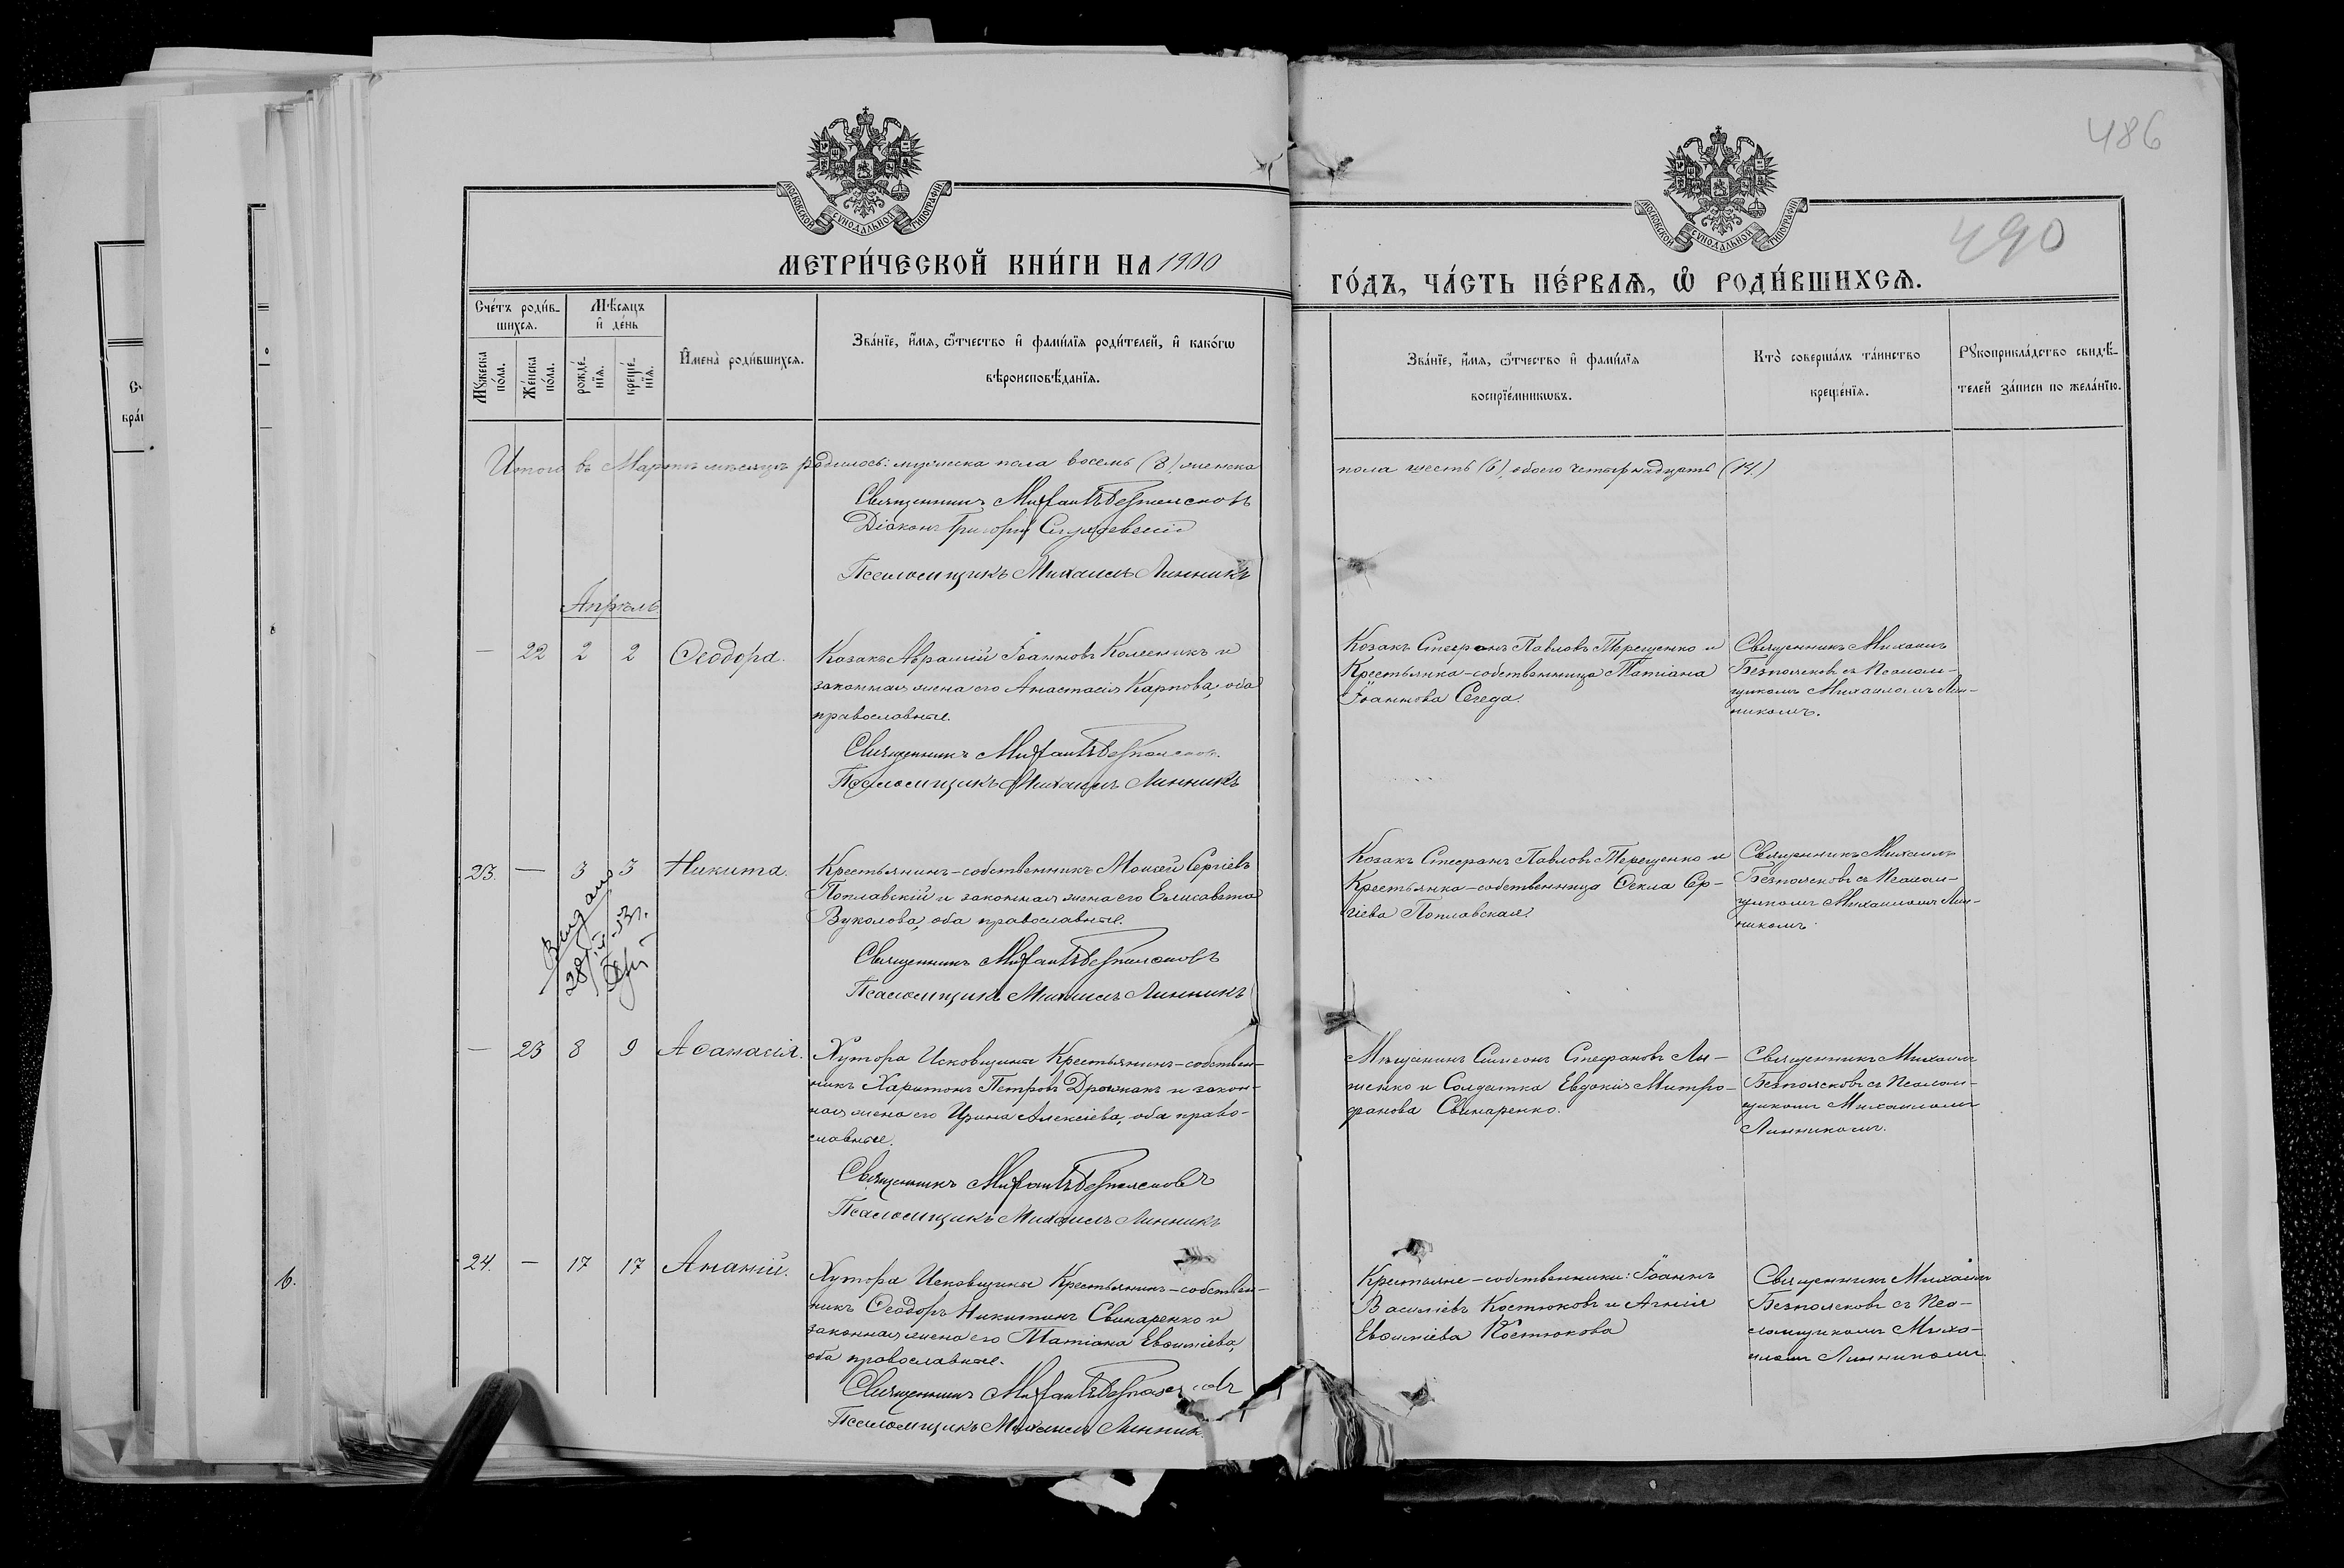 486
490
МОСКОВСКОЙ СѴНОДАЛЬНОЙ ТИПОГРАФІИ
МОСКОВСКОЙ СѴНОДАЛЬНОЙ ТИПОГРАФІИ
МЕТРИ́ЧЕСКОЙ КНИ́ГИ НА 1900
ГО́ДЪ, ЧА́СТЬ ПЕ́РВАѦ, Ѽ РОДИ́ВШИХСѦ.
Сче́тъ роди́в-
шихсѧ.
Мꙋ́жеска по́ла.
Же́нска по́ла.
Мѣ́сѧцъ
и҆ де́нь
рожде́-
нїѧ.
креще́-
нїѧ.
И҆мена̀ роди́вшихсѧ.
Зва́нїе, и҆́мѧ, ѻ҆́тчество и҆ фами́лїѧ роди́телей, и҆ како́гѡ
вѣроисповѣ́данїѧ.
Зва́нїе, и҆́мѧ, ѻ҆́тчество и҆ фами́лїѧ
воспрїе́мникѡвъ.
Кто̀ соверша́лъ та́инство
креще́нїѧ.
Рꙋкоприкла́дство свидѣ́-
телей за́писи по жела́нїю.
Итого въ Мартѣ мѣсяцѣ родилось: мужеска пола восемь (8), женска
пола шесть (6), обоего четырнадцать (14.)
Священникъ Михаилъ Безпоясковъ
Діаконъ Григорій
Псаломщикъ Михаилъ Линникъ
Апрѣль
— 22 2 2 Ѳеодора.
Козакъ Аврамій Іоанновъ Колесникъ и
законная жена его Анастасія Карпова, оба
православные.
Священникъ Михаилъ Безпоясковъ.
Псаломщикъ Михаилъ Линникъ
Козакъ Стефанъ Павловъ Терещенко и
Крестьянка-собственница Татіана
Іоаннова Сегеда.
Священникъ Михаилъ
Безпоясковъ съ Псалом-
щикомъ Михаиломъ Лин-
никомъ.
23. — 3 3 Никита.
Выдано
28/IV 33 г.
Крестьянинъ-собственникъ Моисей Сергіевъ
Поплавскій и законная жена его Елисавета
Вуколова, оба православные.
Священникъ Михаилъ Безпоясковъ
Псаломщикъ Михаилъ Линникъ
Козакъ Стефанъ Павловъ Терещенко и
Крестьянка-собственница Ѳекла Сер-
гіева Поплавская.
Священникъ Михаилъ
Безпоясковъ съ Псалом-
щикомъ Михаиломъ Лин-
никомъ.
— 23 8 9 Аѳанасія.
Хутора Исковщины Крестьянинъ-собствен-
никъ Харитонъ Петровъ Дрожжакъ и закон-
ная жена его Ирина Алексіева, оба право-
славные.
Священникъ Михаилъ Безпоясковъ
Псаломщикъ Михаилъ Линникъ
Мѣщанинъ Симеонъ Стефановъ Ля-
шенко и Солдатка Евдокія Митро-
фанова Свинаренко.
Священникъ Михаилъ
Безпоясковъ съ Псалом-
щикомъ Михаиломъ
Линникомъ.
24. — 17 17 Ананій.
Хутора Исковщины Крестьянинъ-собствен-
никъ Ѳеодоръ Никитинъ Свинаренко и
законная жена его Татіана Евѳиміева,
оба православные.
Священникъ Михаилъ Безпоясковъ
Псаломщикъ Михаилъ Линникъ
Крестьяне-собственники: Іоаннъ
Василіевъ Костюковъ и Агнія
Евѳиміева Костюкова
Священникъ Михаилъ
Безпоясковъ съ Пса-
ломщикомъ Миха-
иломъ Линникомъ